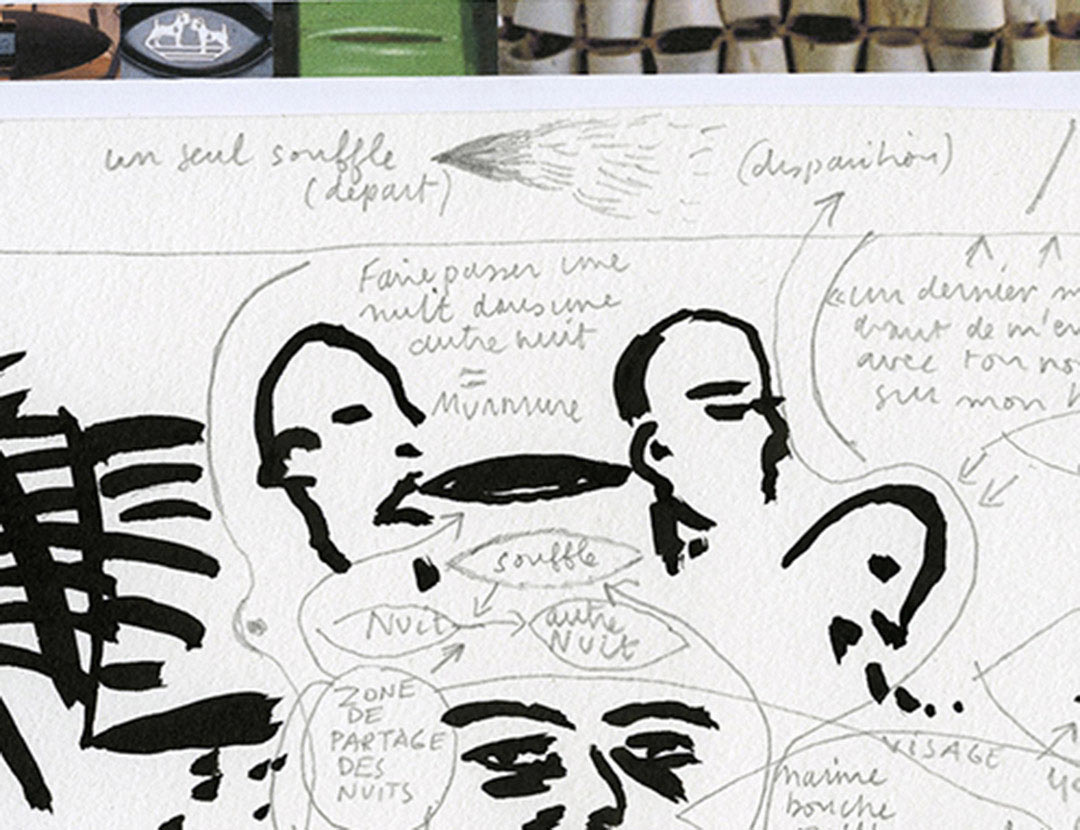 un seul souffle
(départ)
(disparition)
Faire passer une
nuit dans une
autre nuit
=
Murmure
«un dernier
avant de m'en
avec ton no
sur mon
souffle
Nuit
autre
Nuit
ZONE
DE
PARTAGE
DES
NUITS
VISAGE
narine
bouche